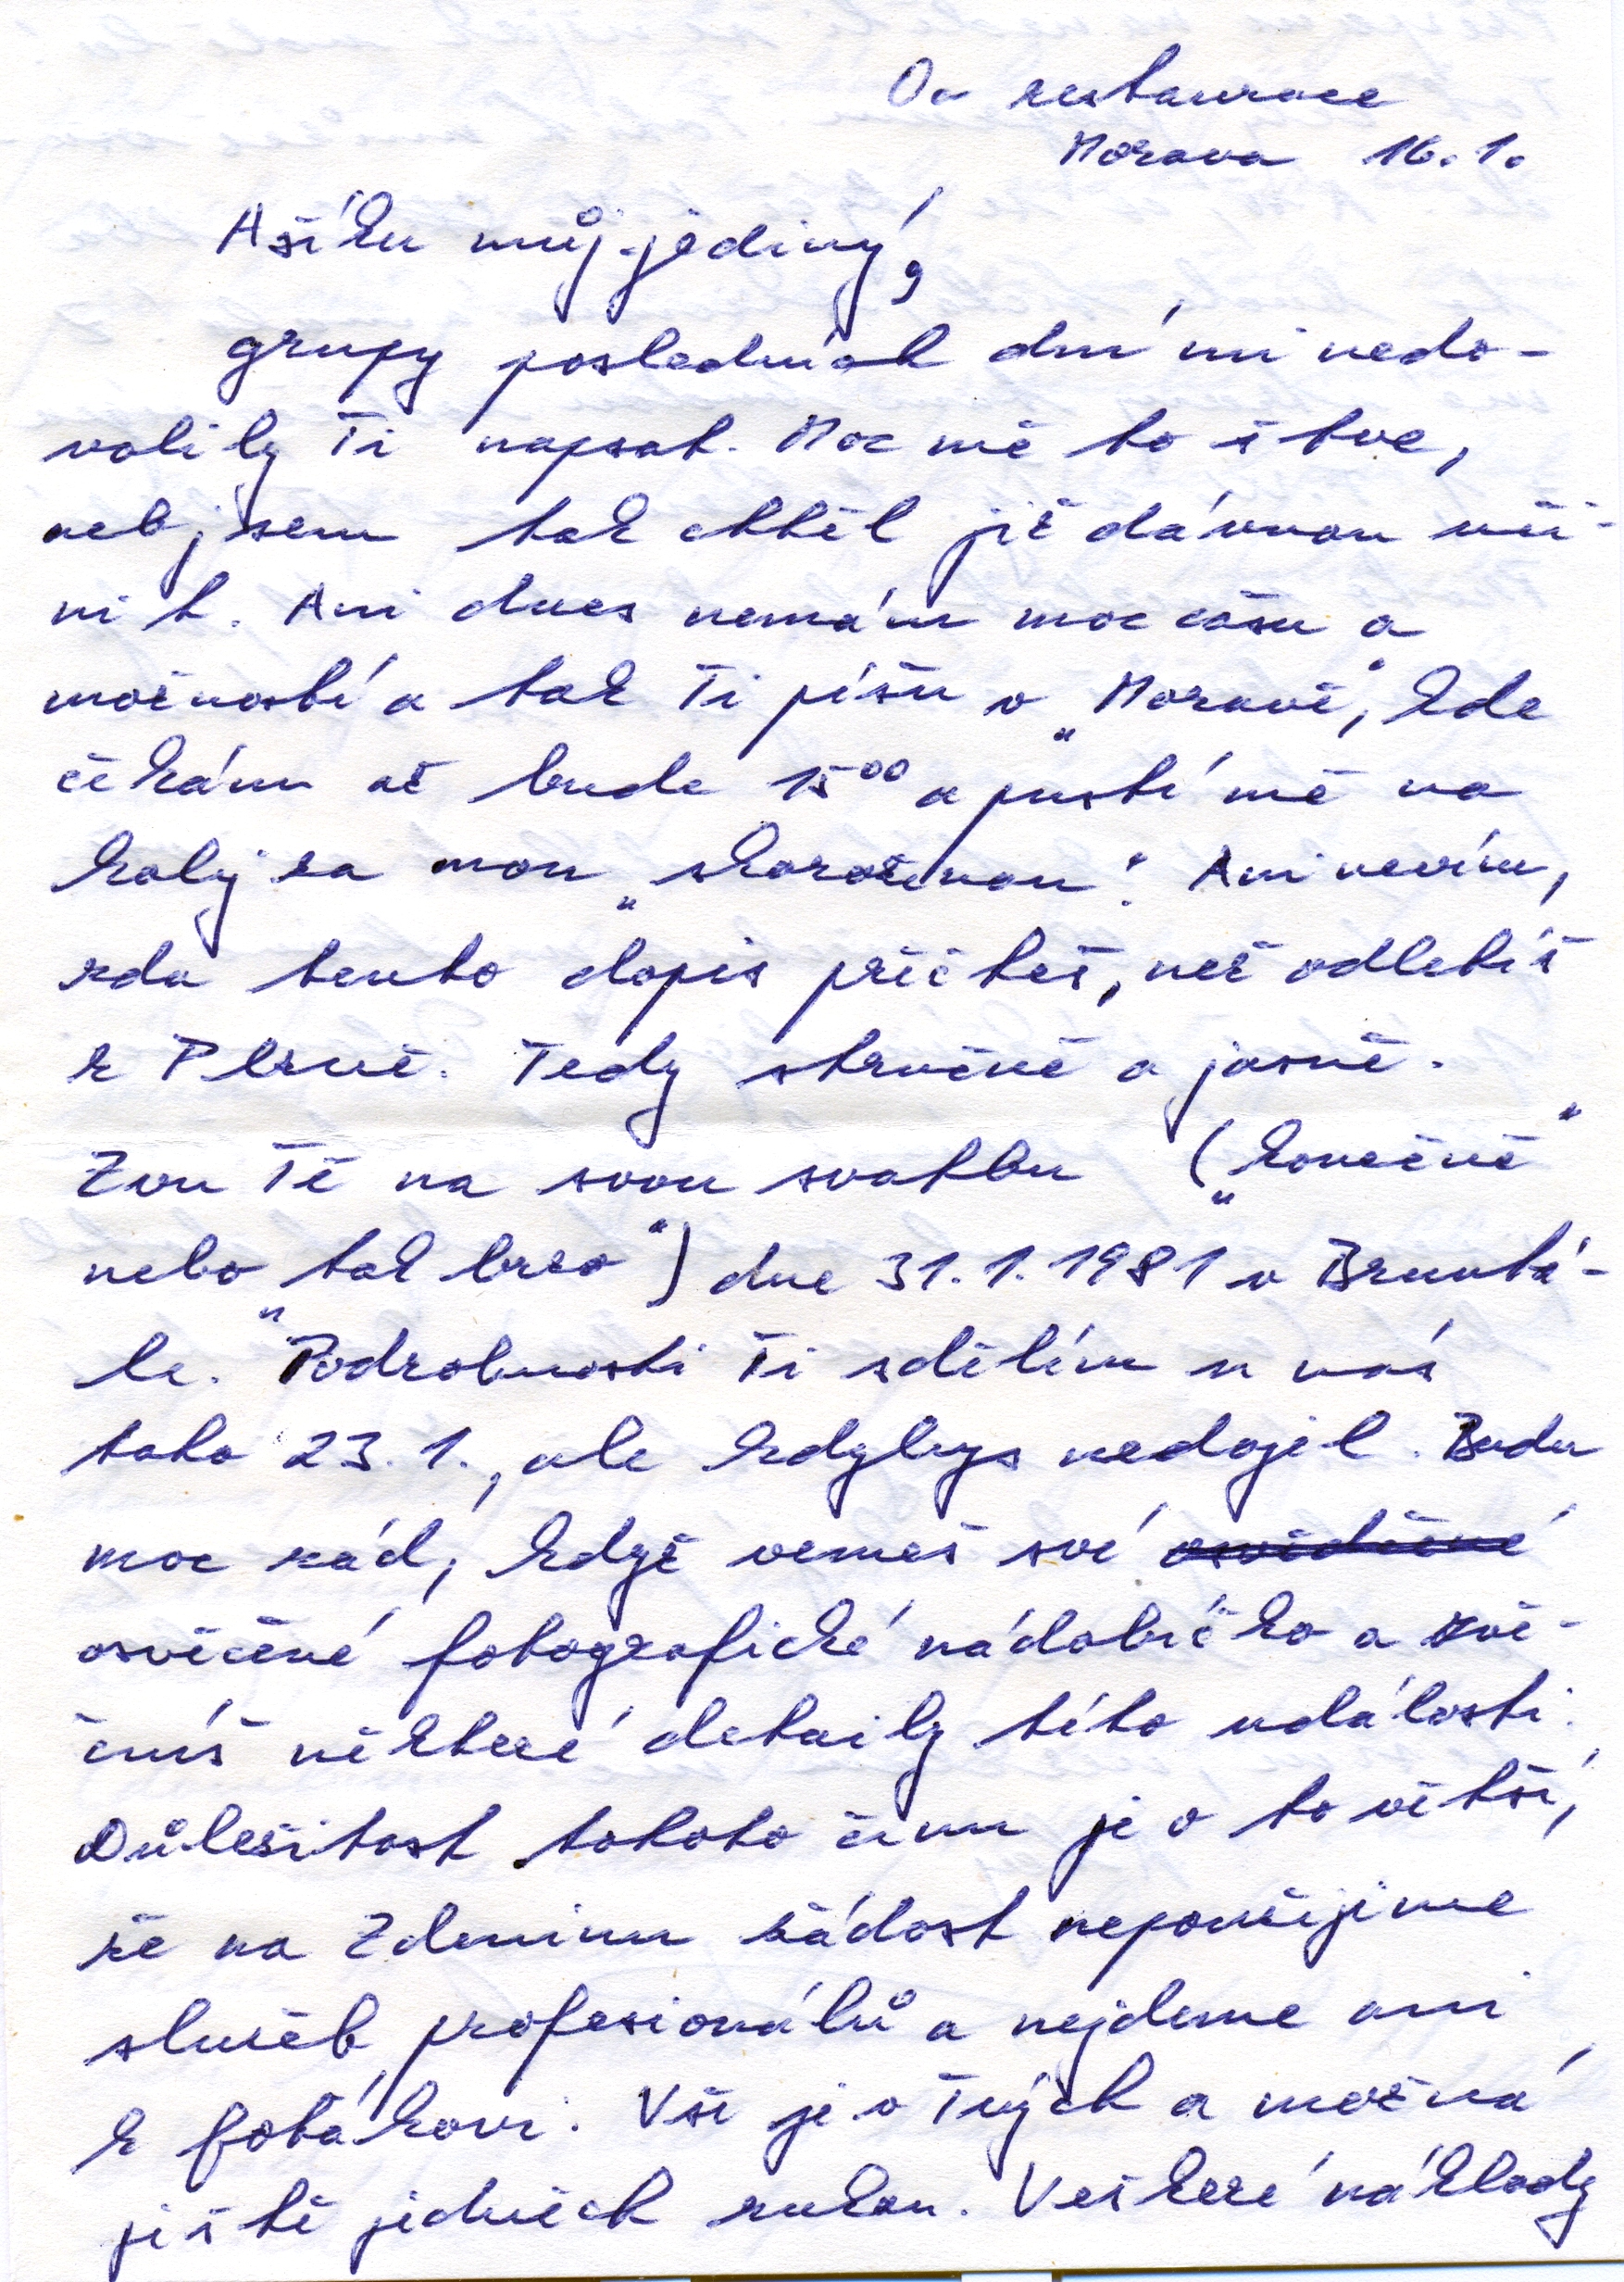 Ov restaurace
Morava 16. 1.
Ašíku můj jediný,
grupy posledních dní mi nedo-
volily Ti napsat. Moc mě to štve,
neb jsem tak chtěl již dávnou uči-
nit. Ani dnes nemám moc času a
možností a tak Ti píšu v „Moravě“, kde
čekám až bude 15⁰⁰ a pustí mě na
kolj za mou „skorožínou“. Ani nevím,
zda tento dopis přečteš, než odletíš
z Plzně. Tedy stručně a jasně.
Zvu Tě na svou svatbu („konečně“
nebo „tak brzo“) dne 31. 1. 1981 v Bruntá-
le. Podrobnosti Ti sdělím u nás
toho 23. 1., ale kdybys nedojel. Budu
moc rád, když vemeš své osvědčené
osvěčené fotografické nádobíčko a zvě-
čníš některé detaily této události.
Důležitost tohoto činu je o to větší,
že na Zdeninu žádost nepoužijime
služeb profesionálů a nejdeme ani
k foťákovi. Vše je v Tvých a možná
ještě jedněch rukou. Veškeré náklady